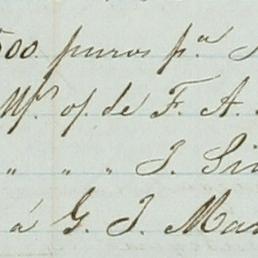 500. puros pª
Mrs of. de F. A.
" " " J. Si
á G. J. Ma